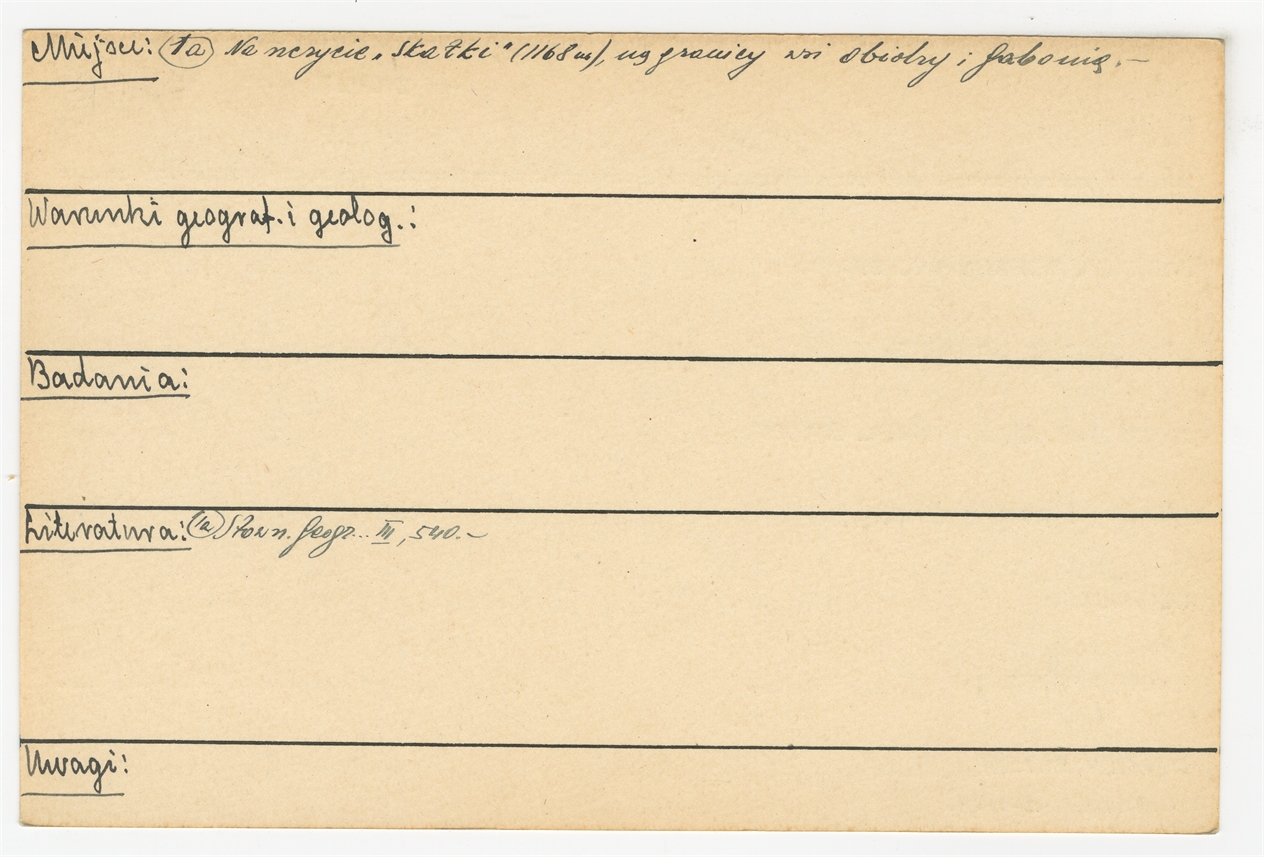 Miejsce: 1a Na szczycie „Skałki" (1168 m), na granicy wsi Obidzy i Gabonia.—
Warunki geograf. i geolog.:
Badania:
Literatura: 1a Słown. Geogr... III, 540.—
Uwagi: